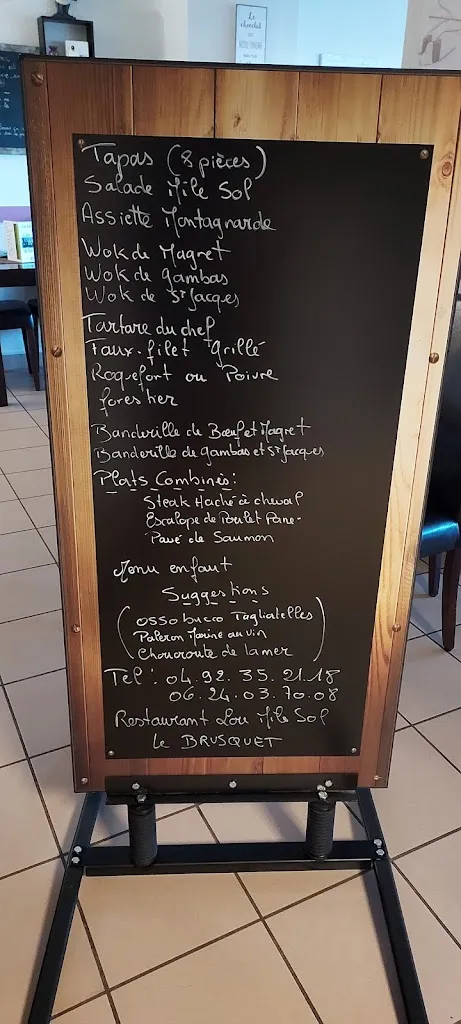 Le
chocolat
Tapas (8 pièces)
Salade Mile Sol
Assiette Montagnarde
Wok de Magret
Wok de gambas
Wok de St Jacques
Tartare du chef
Faux-filet grillé
Roquefort ou Poivre
forestier
Banderille de Bœuf et Magret
Banderille de gambas et St Jacques
Plats Combinés:
Steak Haché à cheval
Escalope de Poulet Pane-
Pavé de Saumon
Menu enfant
Suggestions
(osso buco Tagliatelles)
Paleron Mariné au vin
Choucroute de la mer
Tel: 04.92.35.21.18
06.24.03.70.08
Restaurant Lou Mile Sol
Le BRUSQUET